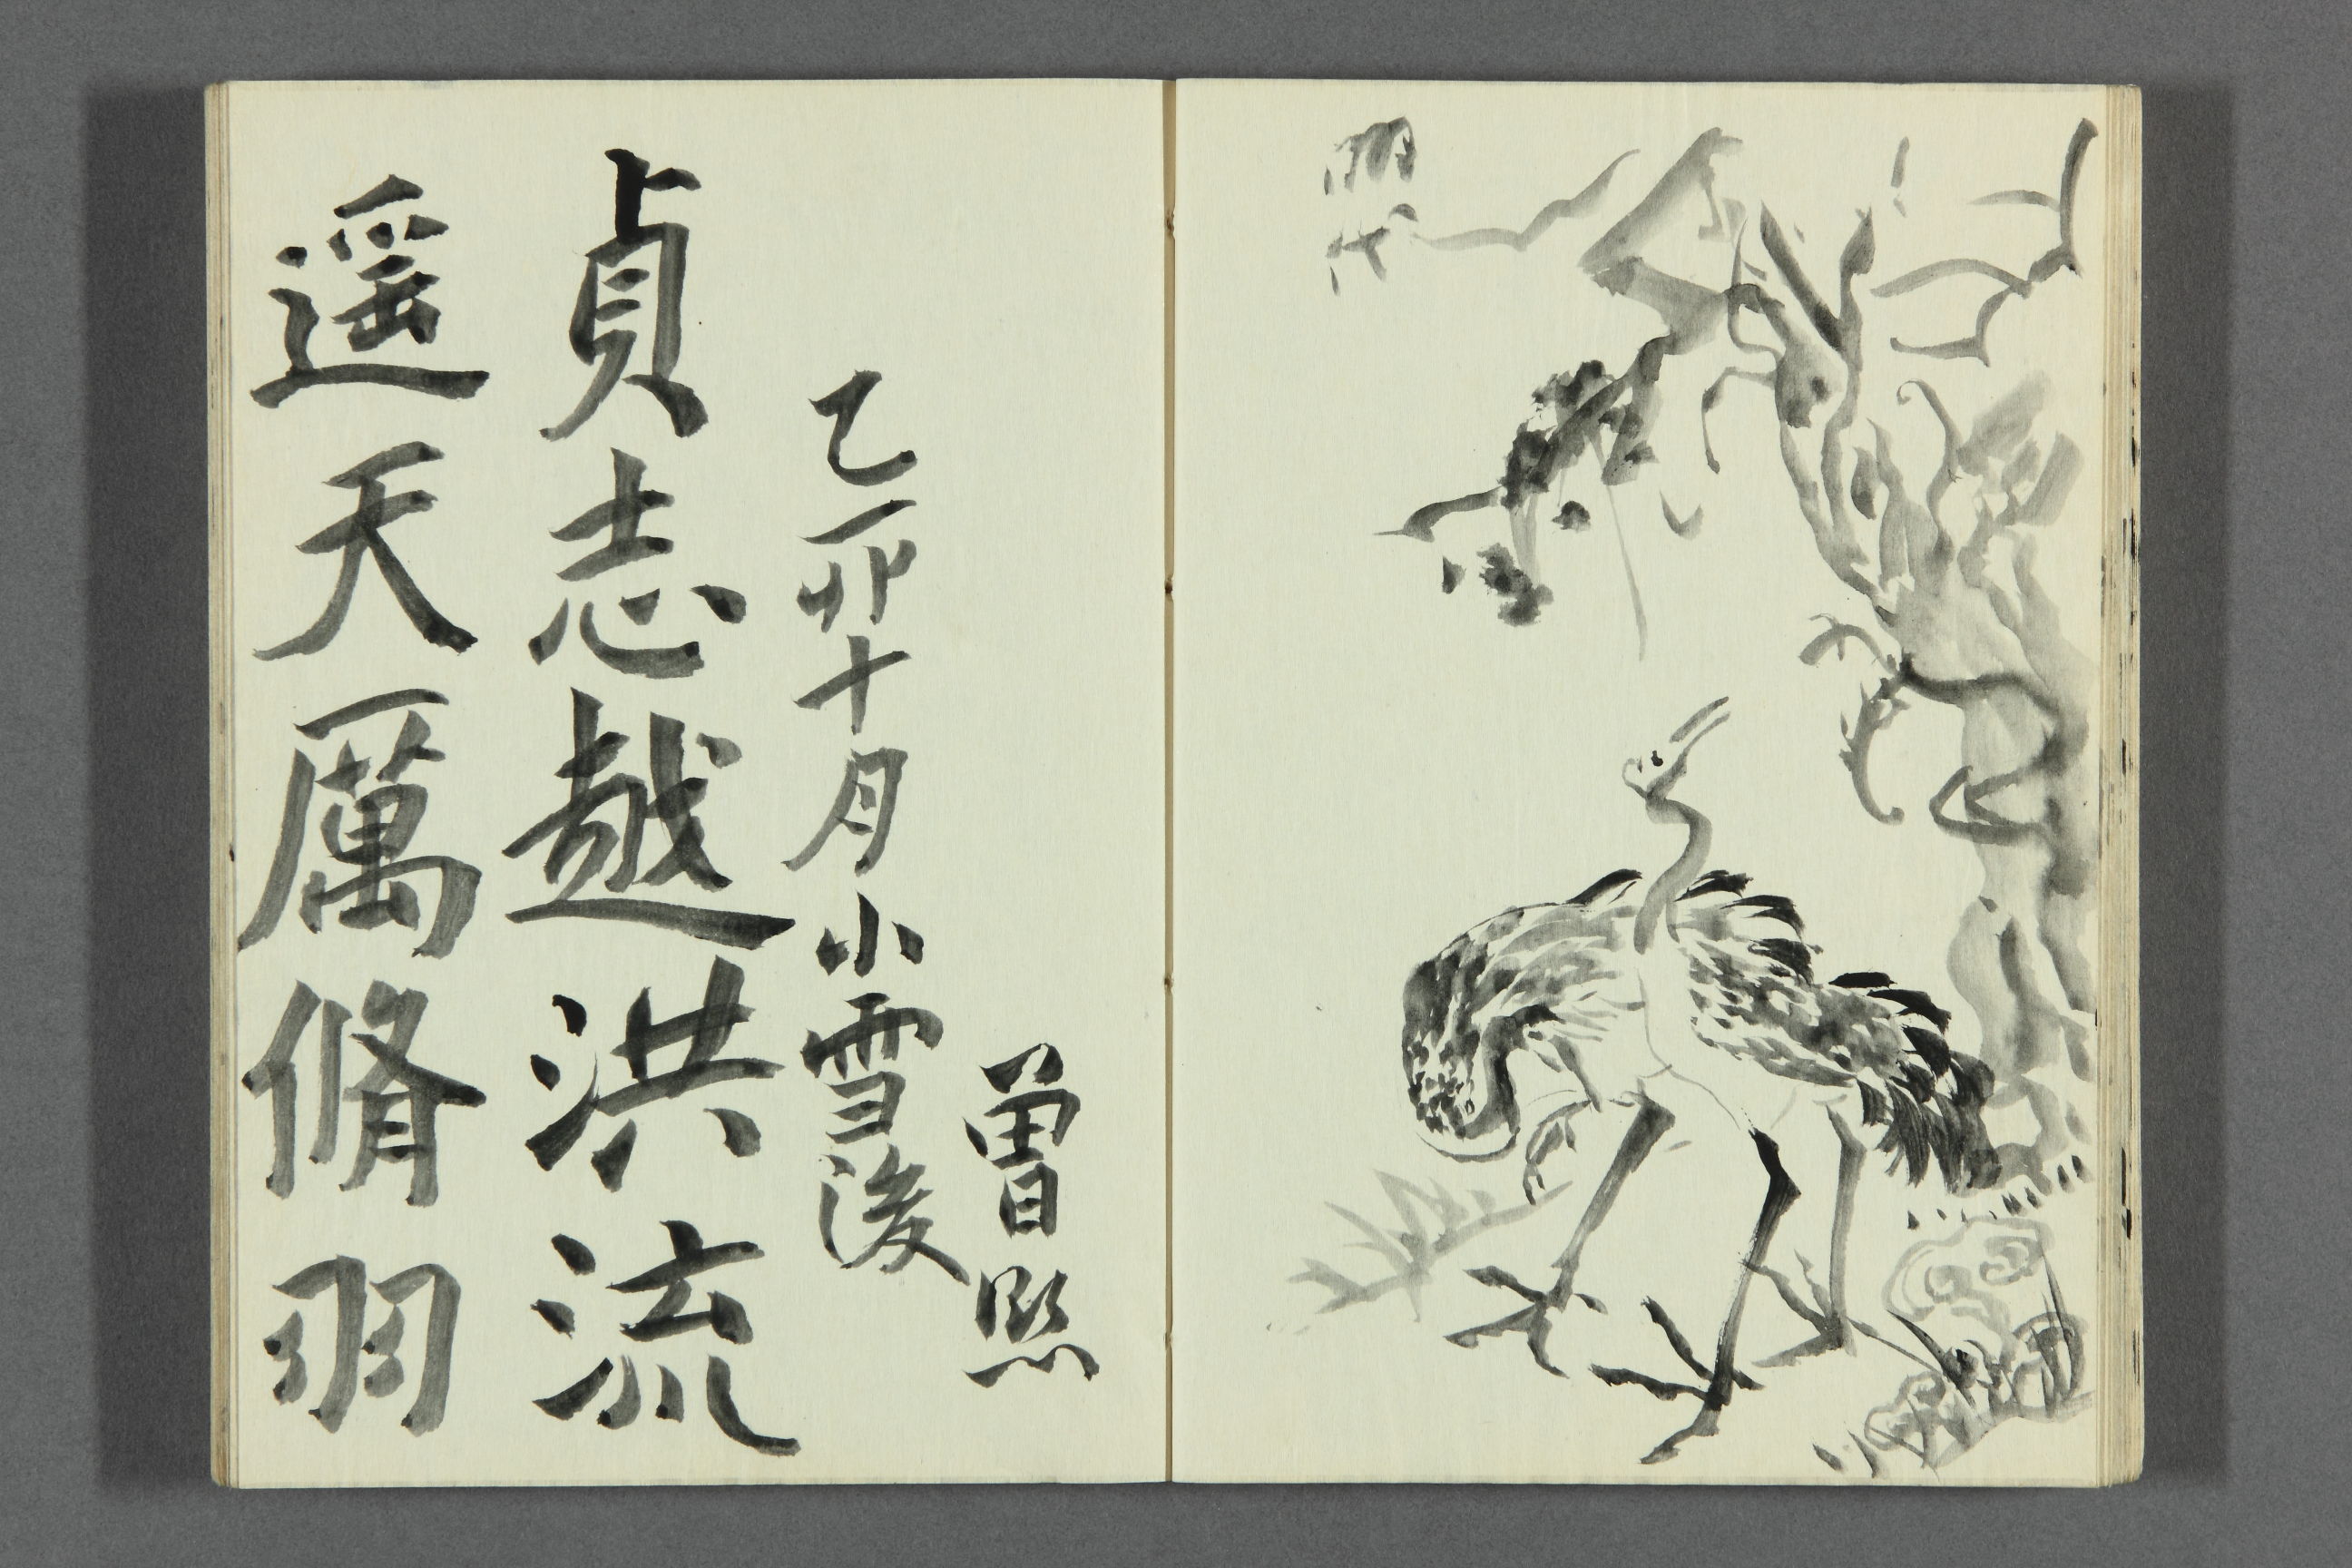 遥天厲脩羽
貞志越洪流
乙卯十月小雪後
曾熙